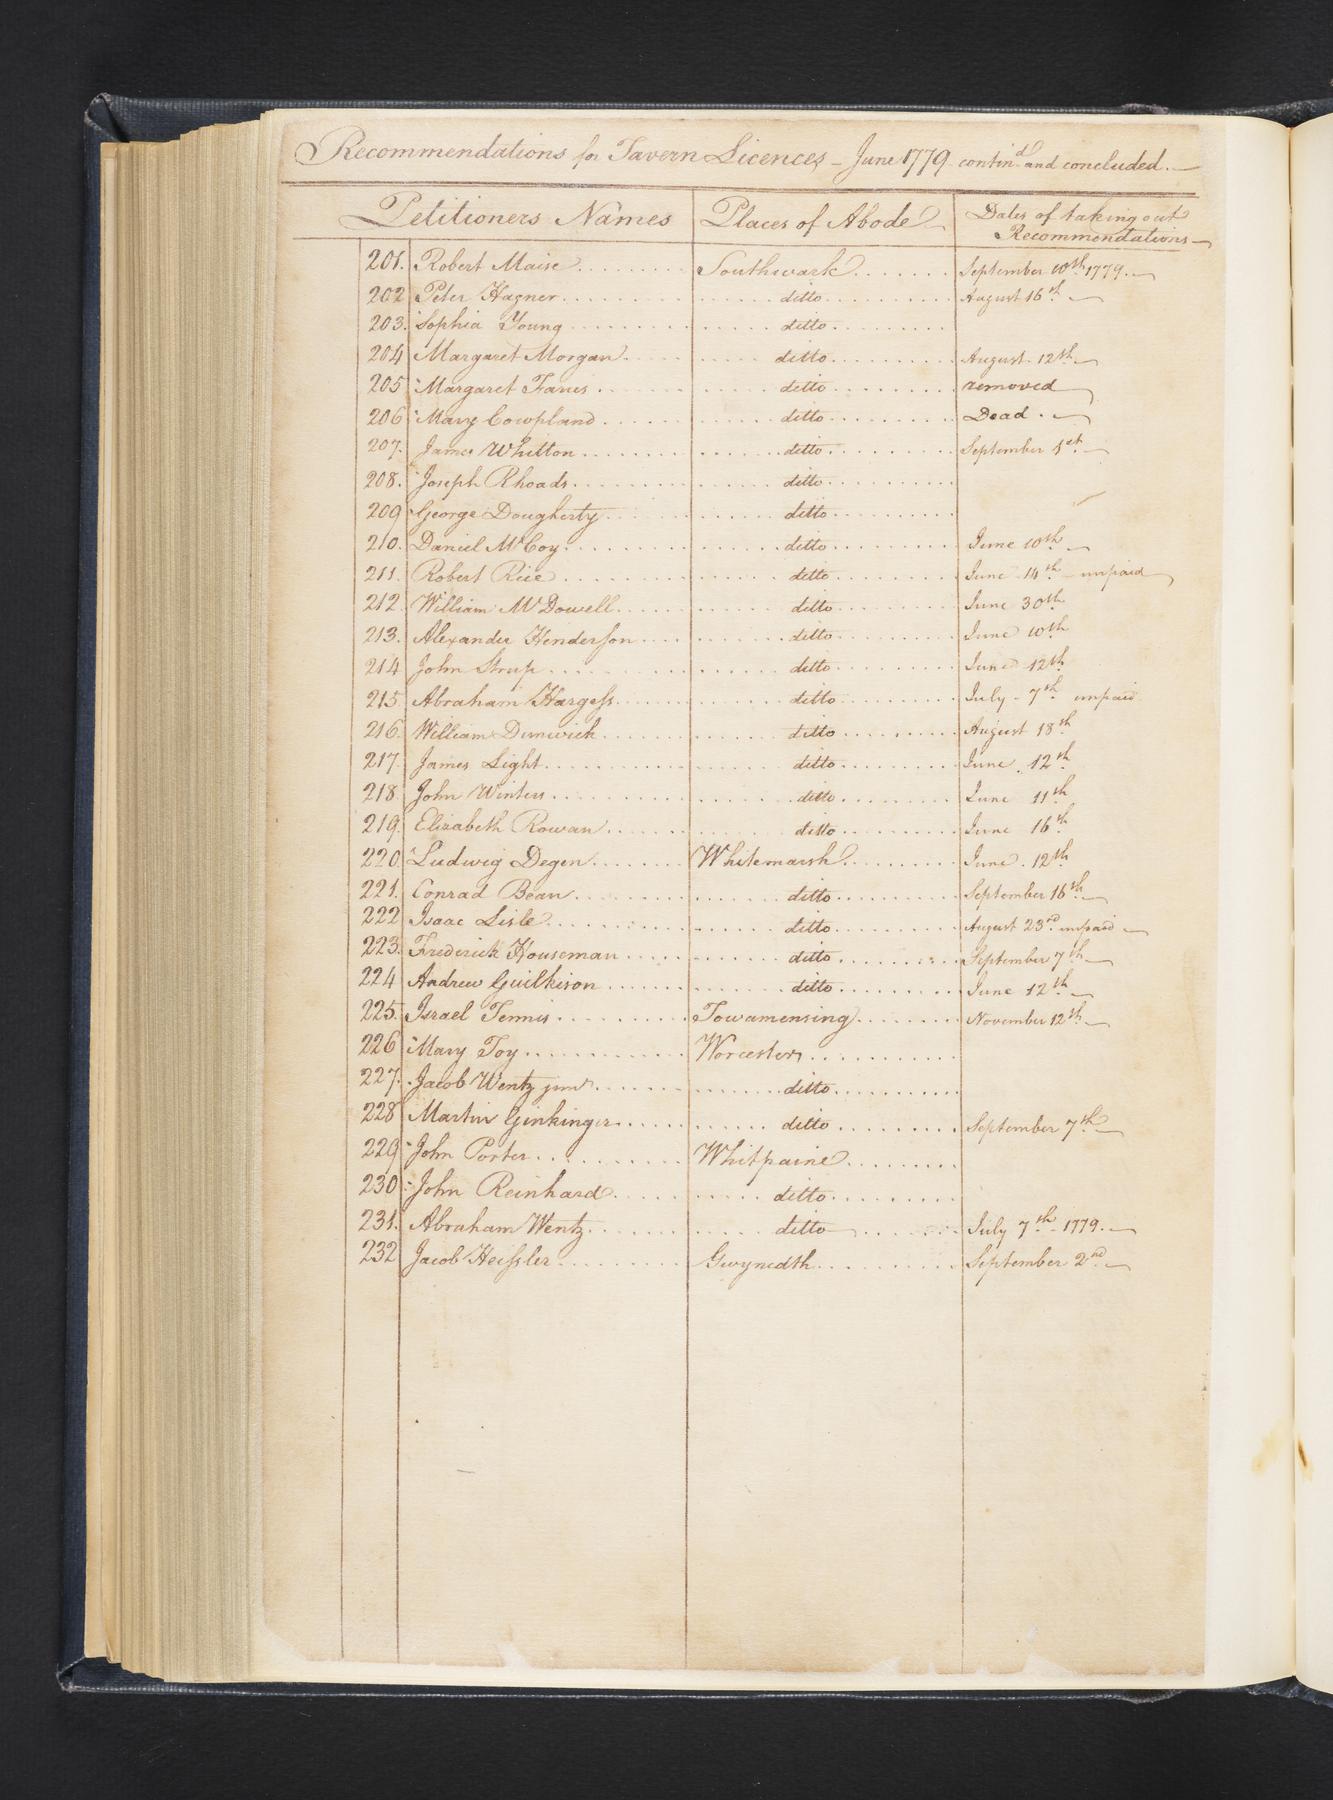 Recommendations for Tavern Licences - June 1779 contin.d and concluded.
Petitioners Names Places of Abode Dates of taking out
Recommendations
201. Robert Maise Southwark September 10th 1779.
202 Peter Hagner ditto August 16th
203. Sophia Young ditto
204 Margaret Morgan ditto August 12th
205 Margaret ditto removed
206 Mary Cowpland ditto Dead.
207. James Whitton ditto September 1st
208. Joseph Rhoads ditto
209 George Dougherty ditto
210. Daniel McCoy ditto June 10th
211. Robert Rice ditto June 14th unpaid
212. William McDowell ditto June 30th
213. Alexander Henderson ditto June 10th
214 John Strup ditto June 12th
215 Abraham Hargess ditto July 7th unpaid
216. William Dunwick ditto August 18th
217. James Light ditto June 12th
218. John Winters ditto June 11th
219. Elizabeth Rowan ditto June 16th
220 Ludwig Degen Whitemarsh June 12th
221. Conrad Bean ditto September 16th
222 Isaac Lisle ditto August 23rd unpaid
223. Frederick Houseman ditto September 7th
224 Andrew Guilkison ditto June 12th
225. Israel Tennis Towamensing November 12th
226 Mary Toy Worcester
227. Jacob Wentz junr ditto
228 Martin Ginkinger ditto September 7th
229 John Porter Whitpaine
230 John Reinhard ditto
231. Abraham Wentz ditto July 7th 1779.
232 Jacob Heissler Gwynedth September 2nd